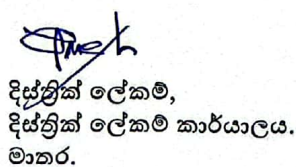 දිස්ත්‍රික් ලේකම්,
දිස්ත්‍රික් ලේකම් කාර්යාලය.
මාතර.